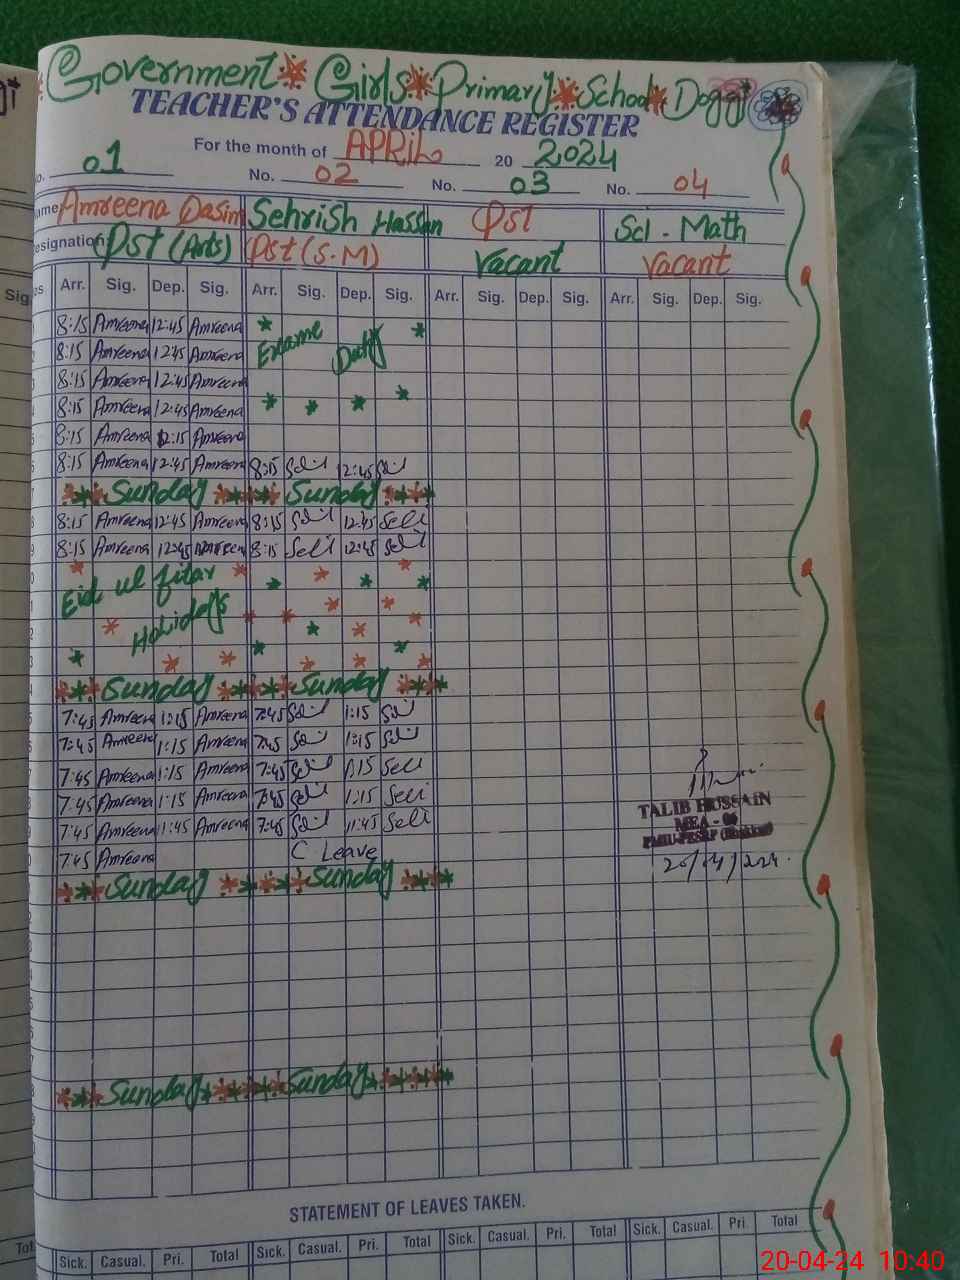 Government Girls Primary School Doggi
TEACHER'S ATTENDANCE REGISTER
For the month of APRIL 20 2024
No. 01 No. 02 No. 03 No. 04
Name Amreena Qasim Sehrish Hassan Pst Sci - Math
esignation Pst (Arts) Pst (S.M) Vacant Vacant
Sig Arr. Sig. Dep. Sig. Arr. Sig. Dep. Sig. Arr. Sig. Dep. Sig. Arr. Sig. Dep. Sig.
8:15 Amreena 12:45 Amreena Exame Duty
8:15 Amreena 12:45 Amreena
8:15 Amreena 12:45 Amreena
8:15 Amreena 12:45 Amreena
8:15 Amreena 12:15 Amreena
8:15 Amreena 12:45 Amreena 8:15 12:45
Sunday Sunday
8:15 Amreena 12:45 Amreena 8:15 12:45
8:15 Amreena 12:45 Amreena 8:15 12:45
Eid ul fitar
Holidays
Sunday Sunday
7:45 Amreena 1:15 Amreena 7:45 1:15
7:45 Amreena 1:15 Amreena 7:45 1:15
7:45 Amreena 1:15 Amreena 7:45 1:15
7:45 Amreena 1:15 Amreena 7:45 1:15
7:45 Amreena 11:45 Amreena 7:45 11:45
7:45 Amreena C Leave
TALIB HUSSAIN
MEA -
20/04/2024.
Sunday Sunday
Sunday Sunday
STATEMENT OF LEAVES TAKEN.
Tot Sick. Casual. Pri. Total Sick. Casual. Pri. Total Sick. Casual. Pri. Total Sick. Casual. Pri. Total
20-04-24 10:40